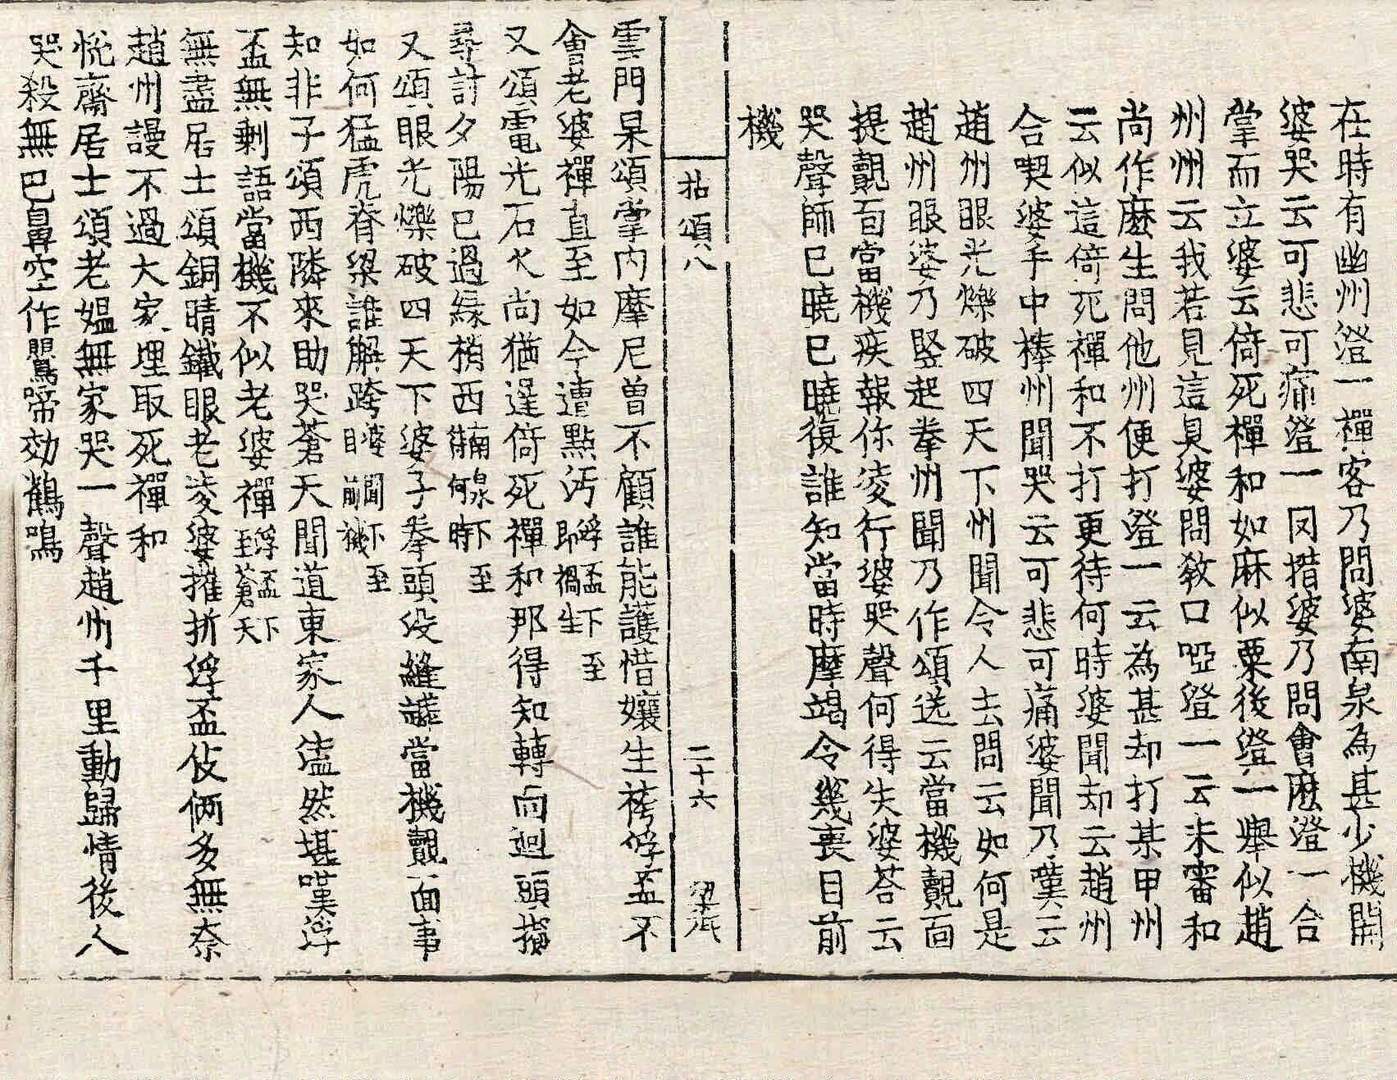 在時有幽州澄一禪客乃問婆南泉為甚少機關
婆哭云可悲可痛澄一罔措婆乃問會麽澄一合
掌而立婆云倚死禪和如麻似粟後澄一舉似趙
州州云我若見這臭婆問教口啞澄一云未審和
尚作麽生問他州便打澄一云為甚却打某甲州
云似這倚死禪和不打更待何時婆聞却云趙州
合喫婆手中棒州聞哭云可悲可痛婆聞乃嘆云
趙州眼光爍破四天下州聞令人去問云如何是
趙州眼婆乃竪起拳州聞乃作頌送云當機覿面
提覿面當機疾報你凌行婆哭聲何得失婆荅云
哭聲師已曉已曉復誰知當時摩竭令幾喪目前
機
拈頌八 二十六
雲門杲頌掌內摩尼曾不顧誰能護惜孃生袴浮盃不
會老婆禪直至如今遭點汚浮盃下至即禍生
又頌電光石火尚猶遲倚死禪和那得知轉面迴頭擬
尋討夕陽已過緑梢西南泉下至待何時
又頌眼光爍破四天下婆子拳頭没縫罅當機覿面事
如何猛虎脊梁誰解跨婆聞下至目前機
知非子頌西隣來助哭蒼天聞道東家人㥿然堪嘆浮
盃無剩語當機不似老婆禪浮盃下至蒼天
無盡居士頌銅睛鐵眼老凌婆摧折浮盃伎倆多無奈
趙州謾不過大家埋取死禪和
悅齋居士頌老媼無家哭一聲趙州千里動歸情後人
哭殺無巴鼻空作鸎啼効鶴鳴